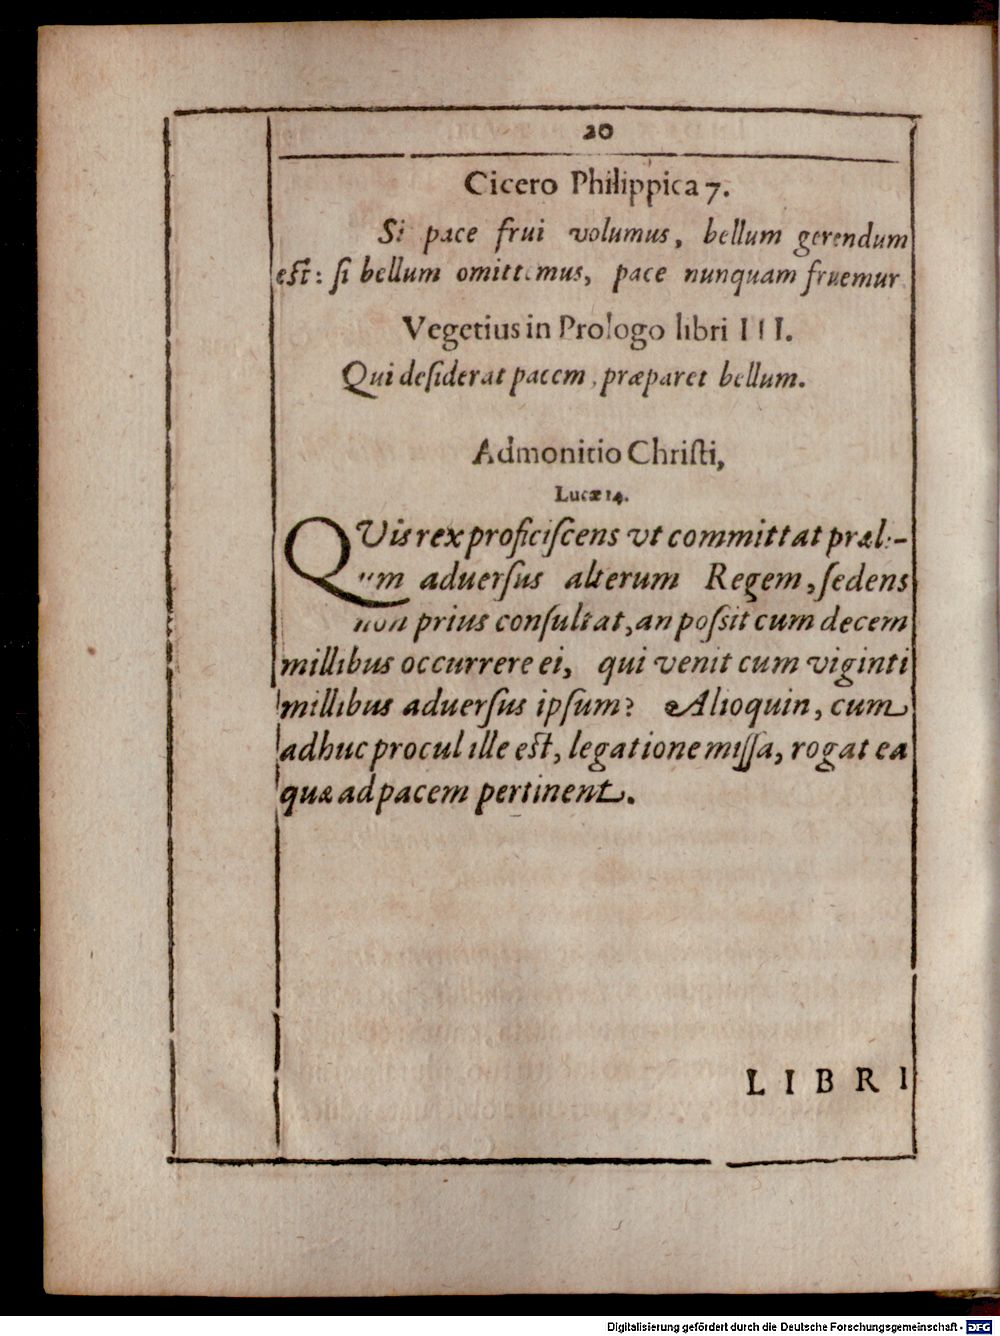 20
Cicero Philippica 7.
Si pace frui volumus, bellum gerendum
est: ſi bellum omittemus, pace nunquam fruemur
Vegetius in Prologo libri III.
Qui deſiderat pacem, præparet bellum.
Admonitio Chriſti,
Lucæ 14.
QVis rex proficiſcens vt committat præli-
um aduerſus alterum Regem, ſedens
non prius conſultat, an poſsit cum decem
millibus occurrere ei, qui venit cum viginti
millibus aduerſus ipſum? Alioquin, cum
adhuc procul ille eſt, legatione miſſa, rogat ea
quæ ad pacem pertinent.
LIBRI
Digitalisierung gefördert durch die Deutsche Forschungsgemeinschaft - DFG